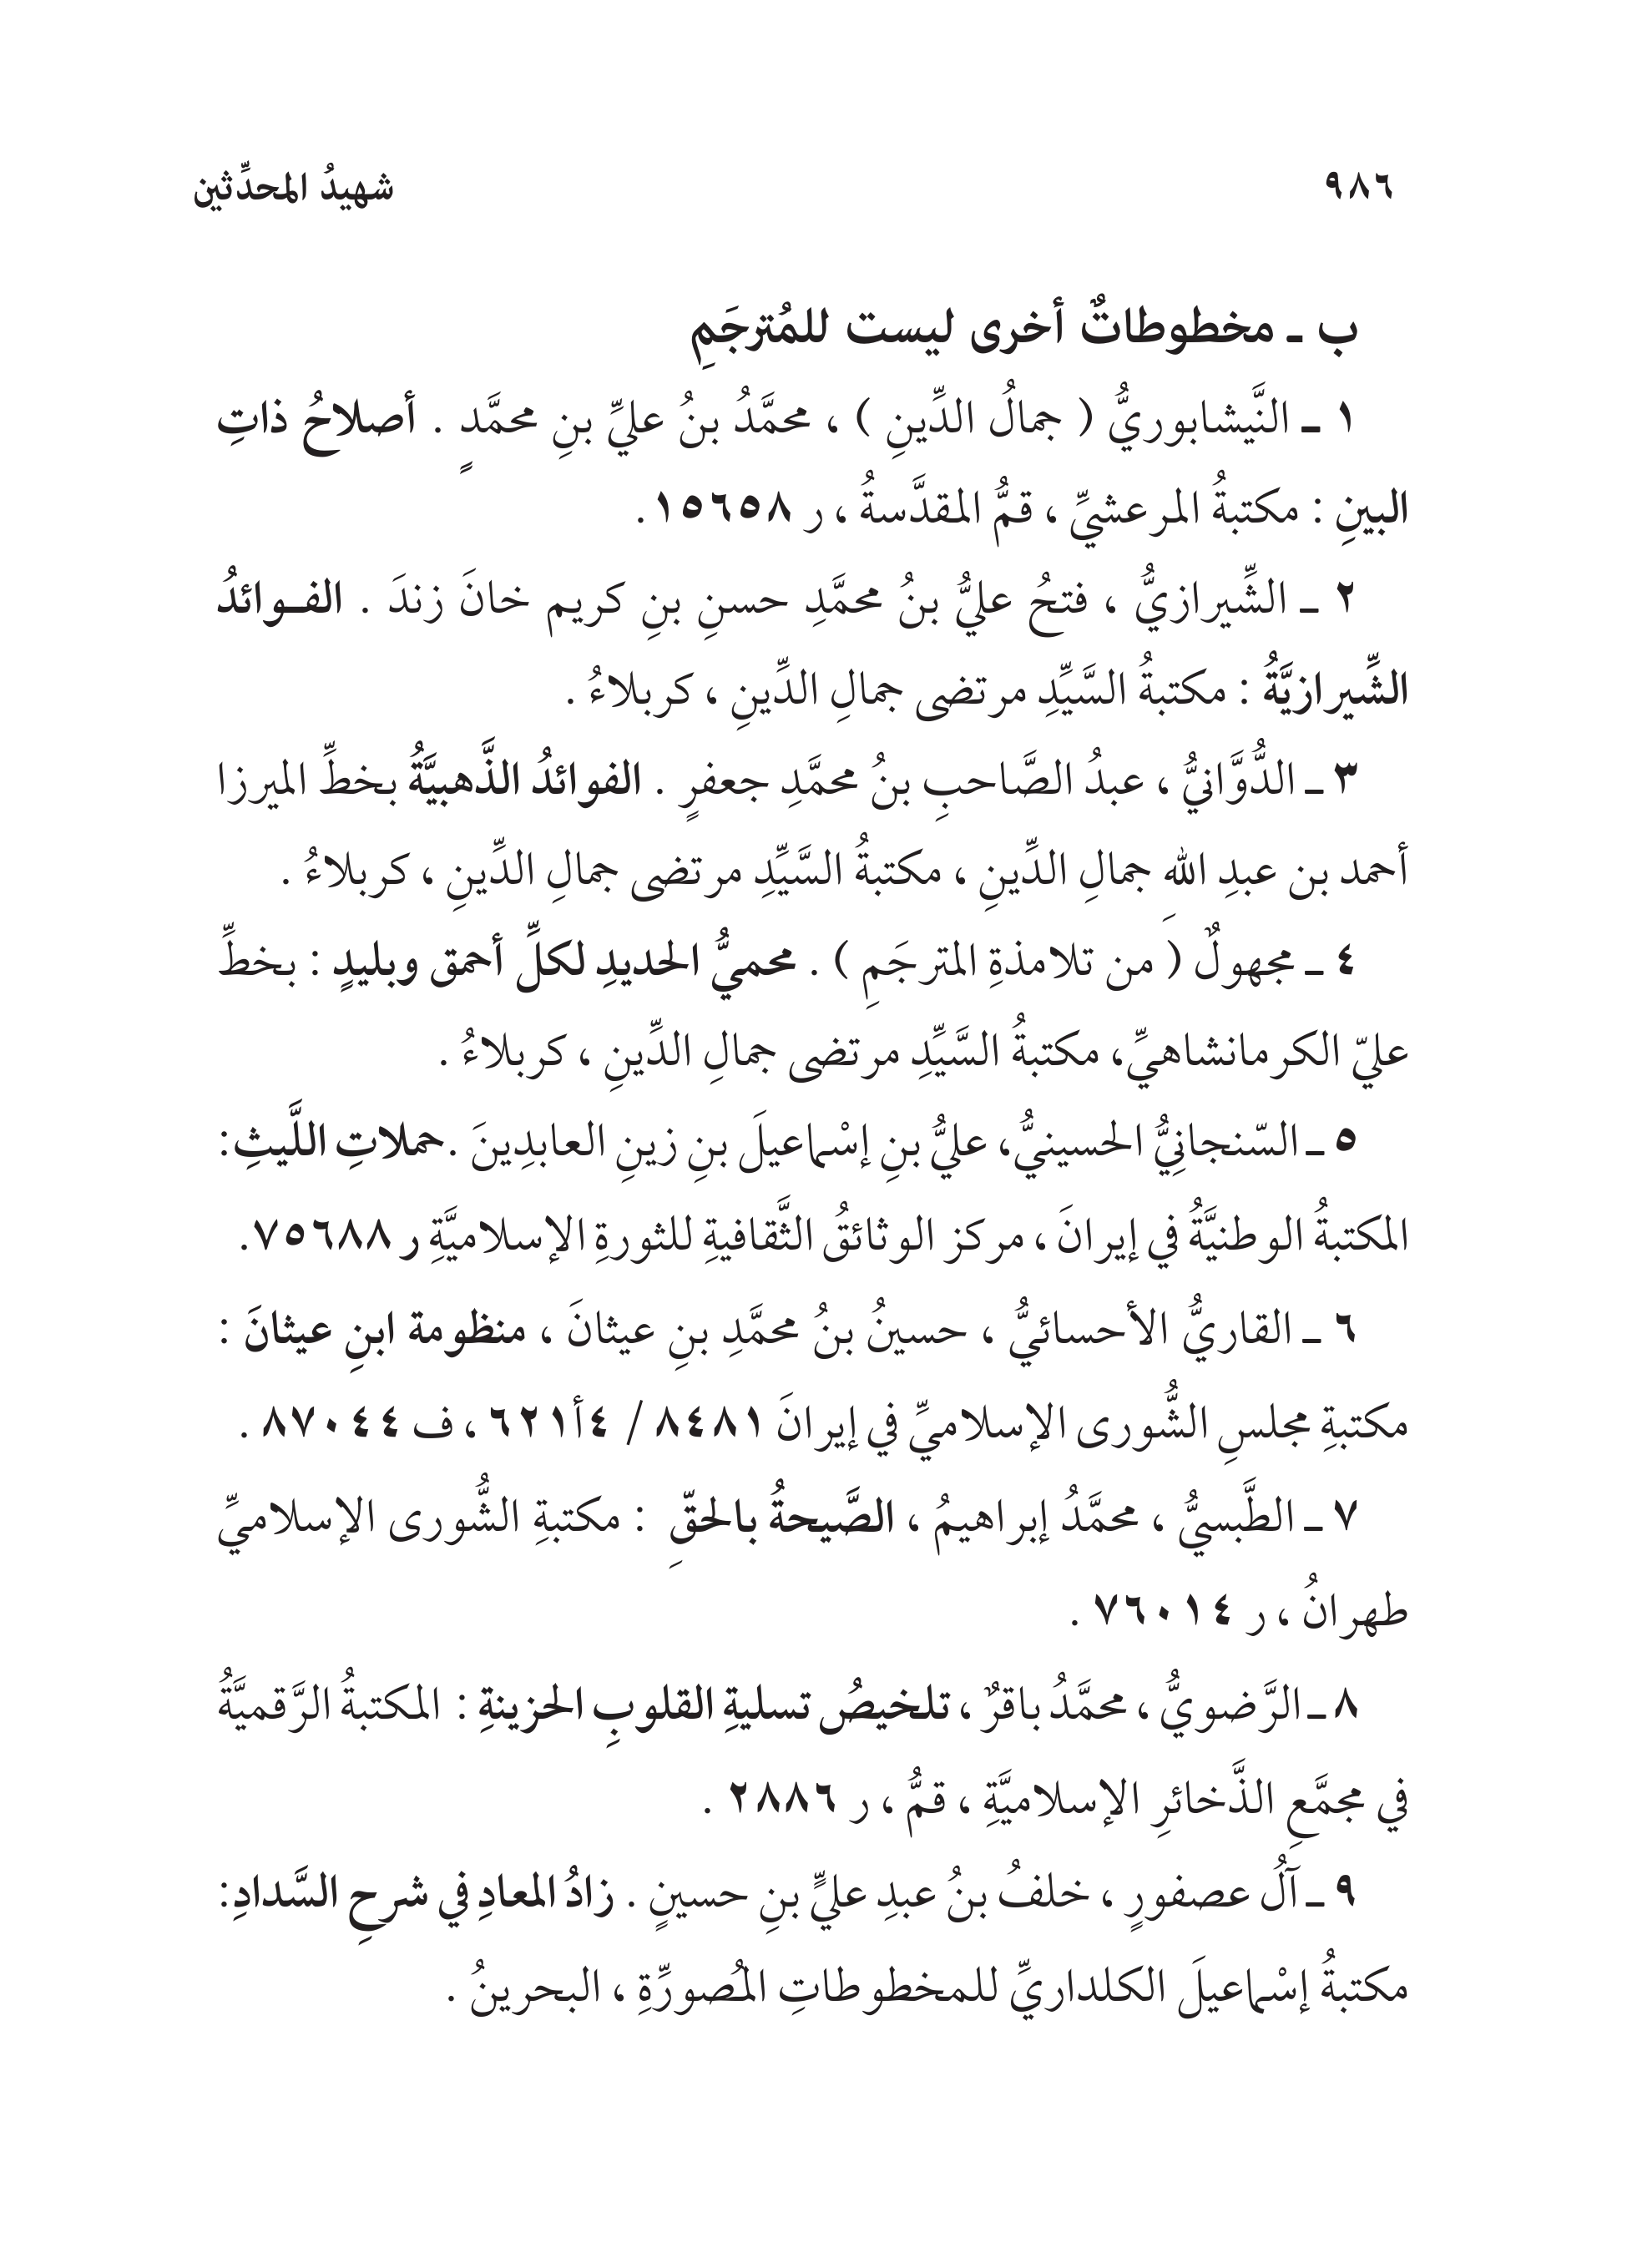 ٩٨٦ شهيدُ المحدِّثين
ب ـ مخطوطاتٌ أخرى ليست للمُترجَمِ
١ ـ النَّيشابوريُّ ( جمالُ الدِّينِ ) ، محمَّدُ بنُ عليِّ بنِ محمَّدٍ . أصلاحُ ذاتِ
البينِ : مكتبةُ المرعشيِّ ، قمُّ المقدَّسةُ ، ر ١٥٦٥٨ .
٢ ـ الشِّيرازيُّ ، فتحُ عليُّ بنُ محمَّدِ حسنِ بنِ كريم خانَ زندَ . الفـوائدُ
الشِّيرازيَّةُ : مكتبةُ السَّيِّدِ مرتضى جمالِ الدِّينِ ، كربلاءُ .
٣ ـ الدُّوَّانيُّ ، عبدُ الصَّاحبِ بنُ محمَّدِ جعفرٍ . الفوائدُ الذَّهبيَّةُ بخطِّ الميرزا
أحمد بن عبدِ الله جمالِ الدِّينِ ، مكتبةُ السَّيِّدِ مرتضى جمالِ الدِّينِ ، كربلاءُ .
٤ ـ مجهولٌ ( من تلامذةِ المترجَمِ ) . محميُّ الحديدِ لكلِّ أحمقَ وبليدٍ : بخطِّ
عليّ الكرمانشاهيِّ، مكتبةُ السَّيِّدِ مرتضى جمالِ الدِّينِ ، كربلاءُ .
٥ ـ السّنجانِيُّ الحسينيُّ، عليُّ بنِ إسْماعيلَ بنِ زينِ العابدِينَ .حملاتِ اللَّيثِ:
المكتبةُ الوطنيَّةُ في إيرانَ ، مركز الوثائقُ الثَّقافيةِ للثورةِ الإسلاميَّةِ ر ٧٥٦٨٨.
٦ ـ القاريُّ الأحسائيُّ ، حسينُ بنُ محمَّدِ بنِ عيثانَ ، منظومة ابنِ عيثانَ :
مكتبةِ مجلسِ الشُّورى الإسلاميِّ في إيرانَ ٨٤٨١ / ٤أ٦٢١ ، ف ٨٧٠٤٤ .
٧ ـ الطَّبسيُّ ، محمَّدُ إبراهيمُ ، الصَّيحةُ بالحقّ​ِ : مكتبةِ الشُّورى الإسلاميِّ
طهرانُ ، ر ٧٦٠١٤ .
٨ ـ الرَّضويُّ ، محمَّدُ باقرٌ ، تلخيصُ تسليةِ القلوبِ الحزينةِ : المكتبةُ الرَّقميَّةُ
في مجمَّعِ الذَّخائرِ الإسلاميَّةِ ، قمُّ ، ر ٢٨٨٦ .
٩ ـ آلُ عصفورٍ ، خلفُ بنُ عبدِ عليٍّ بنِ حسينٍ . زادُ المعادِ في شرحِ السَّدادِ:
مكتبةُ إسْماعيلَ الكلداريِّ للمخطوطاتِ المُصورَّةِ ، البحرينُ .